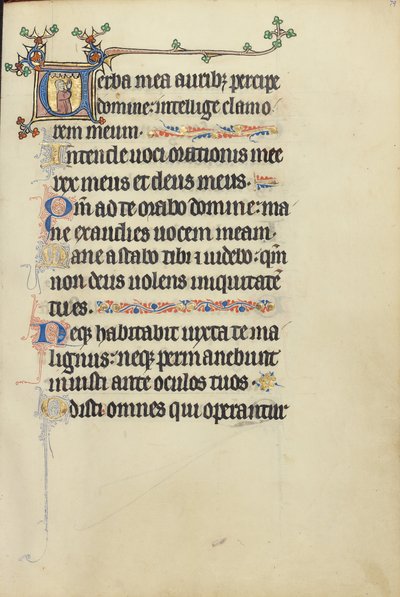 79
Verba mea aurib; percipe
domine: intellige clamo
rem meum.
Intende voci orationis mee
rex meus et deus meus.
Qm ad te orabo domine: ma
ne exaudies vocem meam.
Mane astabo tibi ⁊ videbo: qm
non deus volens iniquitatē
tu es.
Neq; habitabit iuxta te ma
lignus: neq; permanebunt
iniusti ante oculos tuos.
Odisti omnes qui operantur